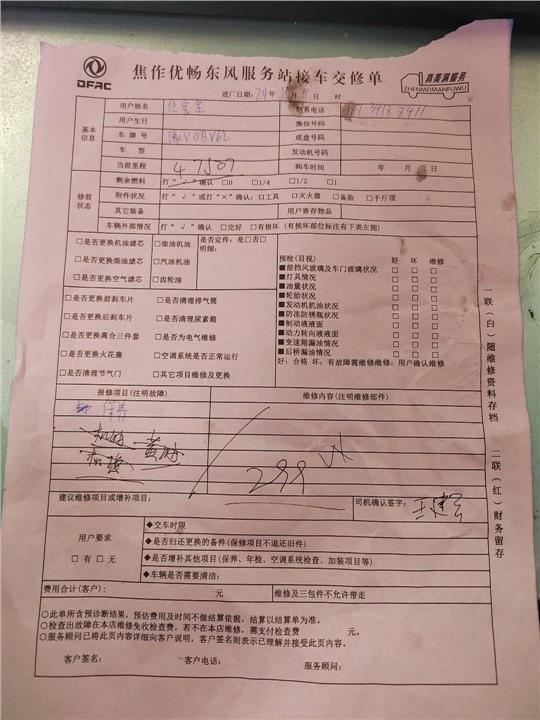 DFAC
焦作优畅东风服务站接车交修单
真美满服务
ZHENMEIMANFUWU
进厂日期：24年 月 日 时
基本信息
用户姓名
联系电话
用户生日
微信号码
车牌号
底盘号码
车型
发动机号码
当前里程
47507
购车时间
年 月 日
修前状态
剩余燃料
打“√”确认 □0 □1/4 □1/2 □1
附件状况
打“√”或打“×”确认：□工具 □灭火器 □备胎 □千斤顶
其它装备
用户寄存物品
车辆外部情况
打“√”确认 □完好 □有损坏（有损坏部位标注有下表左图）
□是否更换机油滤芯 □柴油机油
□是否更换柴油滤芯 □汽油机油
□是否更换空气滤芯 □齿轮油
是否定件：是□否□
明细：
□是否更换前刹车片 □是否清理排气筒
□是否更换后刹车片 □是否清理尿素箱
□是否更换离合三件套 □是否为电气维修
□是否更换火花塞 □空调系统是否正常运行
□是否清理节气门 □其它项目维修及更换
预检（目视） 好 坏 维修
■前挡风玻璃及车门玻璃状况 □ □ □
■灯具情况 □ □ □
■油量状况 □ □ □
■轮胎状况 □ □ □
■发动机机油状况 □ □ □
■防冻防锈瓶状况 □ □ □
■制动液液面 □ □ □
■动力转向液液面 □ □ □
■变速箱漏油情况 □ □ □
■后桥漏油情况 □ □ □
好：合格 坏：有故障需维修维修：用户确认维修
报修项目（注明故障）
维修内容（注明维修部件）
保养
机滤 黄油
299
建议维修项目或增补项目：
司机确认签字：
用户要求
□有 □无
◆交车时限
◆是否归还更换的备件（保修项目不退还旧件）
◆是否增补其他项目（保养、年检、空调系统检查、加装项目等）
◆车辆是否需要清洁：
费用合计（客户）： 元
维修及三包件不允许带走
○此单所含预诊断结果，预估费用及时间不做结算依据，结算以结算单为准。
○检查出故障在本店维修免收检查费，若不在本店维修，需支付检查费 元。
○服务顾问已将此页内容详细向客户说明，客户签名则表示已理解并接受此页内容。
客户签名： 客户电话： 服务顾问：
一联（白）随维修资料存档
二联（红）财务留存